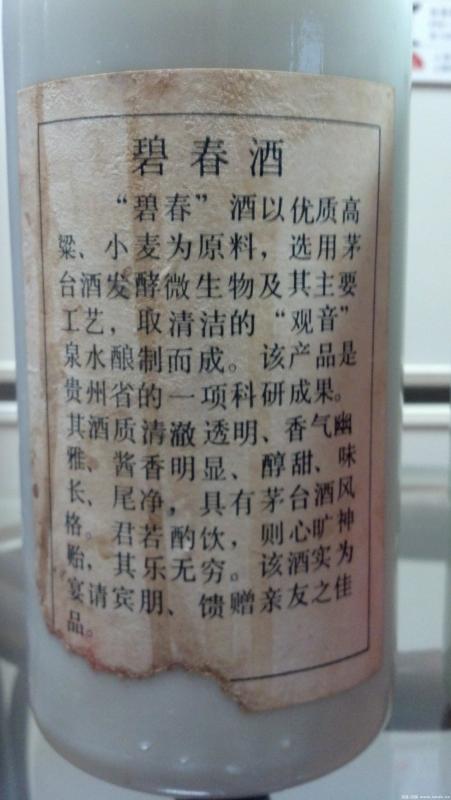 碧春酒
“碧春”酒以优质高
粱、小麦为原料，选用茅
台酒发酵微生物及其主要
工艺，取清洁的“观音”
泉水酿制而成。该产品是
贵州省的一项科研成果。
其酒质清澈透明、香气幽
雅、酱香明显、醇甜、味
长、尾净，具有茅台酒风
格。君若酌饮，则心旷神
贻，其乐无穷。该酒实为
宴请宾朋、馈赠亲友之佳
品。